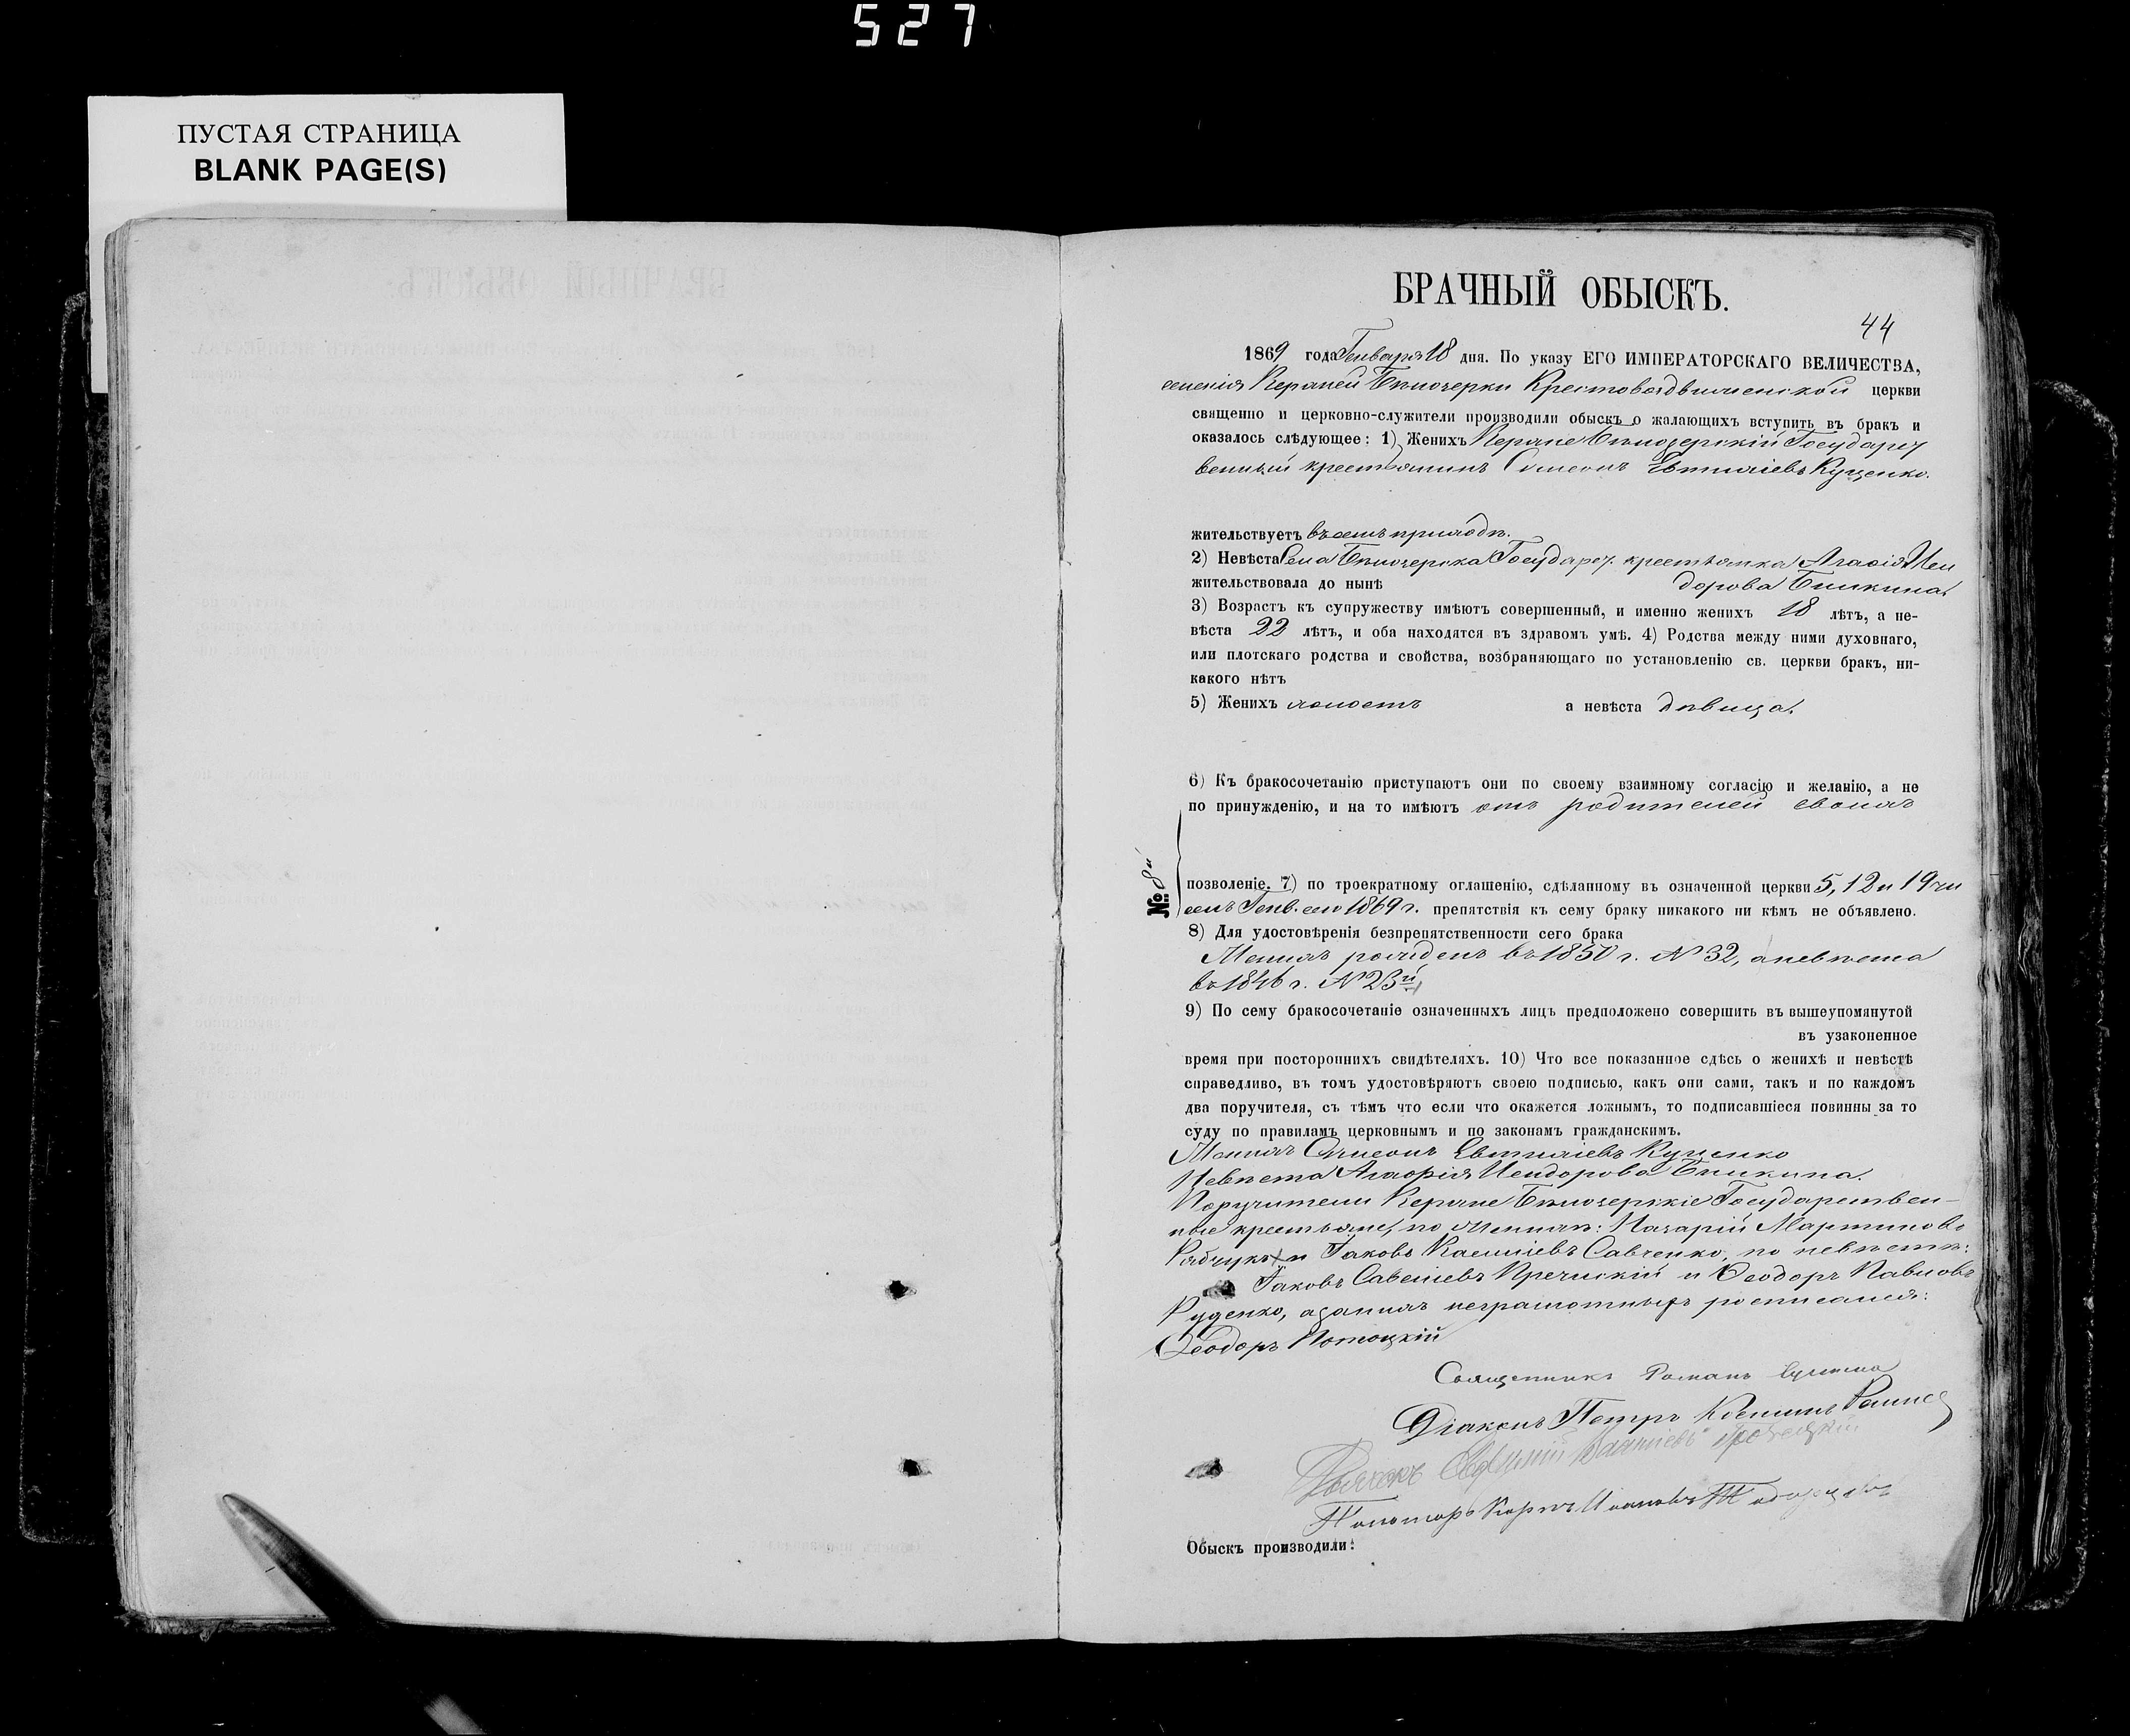 527
ПУСТАЯ СТРАНИЦА
BLANK PAGE(S)
БРАЧНЫЙ ОБЫСКЪ.
44
1869 года Генваря 18 дня. По указу ЕГО ИМПЕРАТОРСКАГО ВЕЛИЧЕСТВА,
селенія Керлней Бѣлозерки Крестовоздвиженской церкви
священно и церковно-служители производили обыскъ о жалающихъ вступить въ бракъ и
оказалось слѣдующее: 1) Женихъ Бѣлозерскій Государст
венный крестьянинъ Симеонъ Евтихіевъ Куценко.
жительствуетъ въ семъ приходѣ.
2) Невѣста Села Бѣлозерки Государст. крестьянка Агафія Иси
жительствовала до нынѣ дорова Бѣлкина.
3) Возрастъ къ супружеству имѣютъ совершенный, и именно женихъ 18 лѣтъ, а не-
вѣста 22 лѣтъ, и оба находятся въ здравомъ умѣ. 4) Родства между ними духовнаго,
или плотскаго родства и свойства, возбраняющаго по установленію св. церкви бракъ, ни-
какого нѣтъ
5) Женихъ холостъ а невѣста дѣвица.
6) Къ бракосочетанію приступаютъ они по своему взаимному согласію и желанію, а не
по принужденію, и на то имѣютъ отъ родителей своихъ
№ 8й
позволеніе. 7) по троекратному оглашенію, сдѣланному въ означенной церкви 5, 12 и 19 чи
селъ Генв. сего 1869 г. препятствія къ сему браку никакого ни кѣмъ не объявлено.
8) Для удостовѣренія безпрепятственности сего брака
Женихъ рожденъ въ 1850 г. № 32, а невѣста
въ 1846 г. № 23й
9) По сему бракосочетаніе означенныхъ лицъ предположено совершить въ вышеупомянутой
въ узаконенное
время при постороннихъ свидѣтеляхъ. 10) Что все показанное сдѣсь о женихѣ и невѣстѣ
справедливо, въ томъ удостовѣряютъ своею подписью, какъ они сами, такъ и по каждомъ
два поручителя, съ тѣмъ что если что окажется ложнымъ, то подписавшіеся повинны за то
суду по правиламъ церковнымъ и по законамъ гражданскимъ.
Женихъ Симеонъ Евтихіевъ Куценко
Невѣста Агафія Исидорова Бѣлкина.
Поручители Бѣлозерскіе Государствен-
ные крестьяне, по женихѣ: Назарій Мартиновъ
Рабчукъ и Іаковъ Савченко, по невѣстѣ:
Іаковъ Савеліевъ и Ѳеодоръ Павловъ
Руденко, а за нихъ неграмотныхъ росписался:
Ѳеодоръ Потоцкій
Священникъ Романъ
Діаконъ Петръ
Дьячокъ Евфимій
Пономаръ Карпъ Ивановъ
Обыскъ производили: